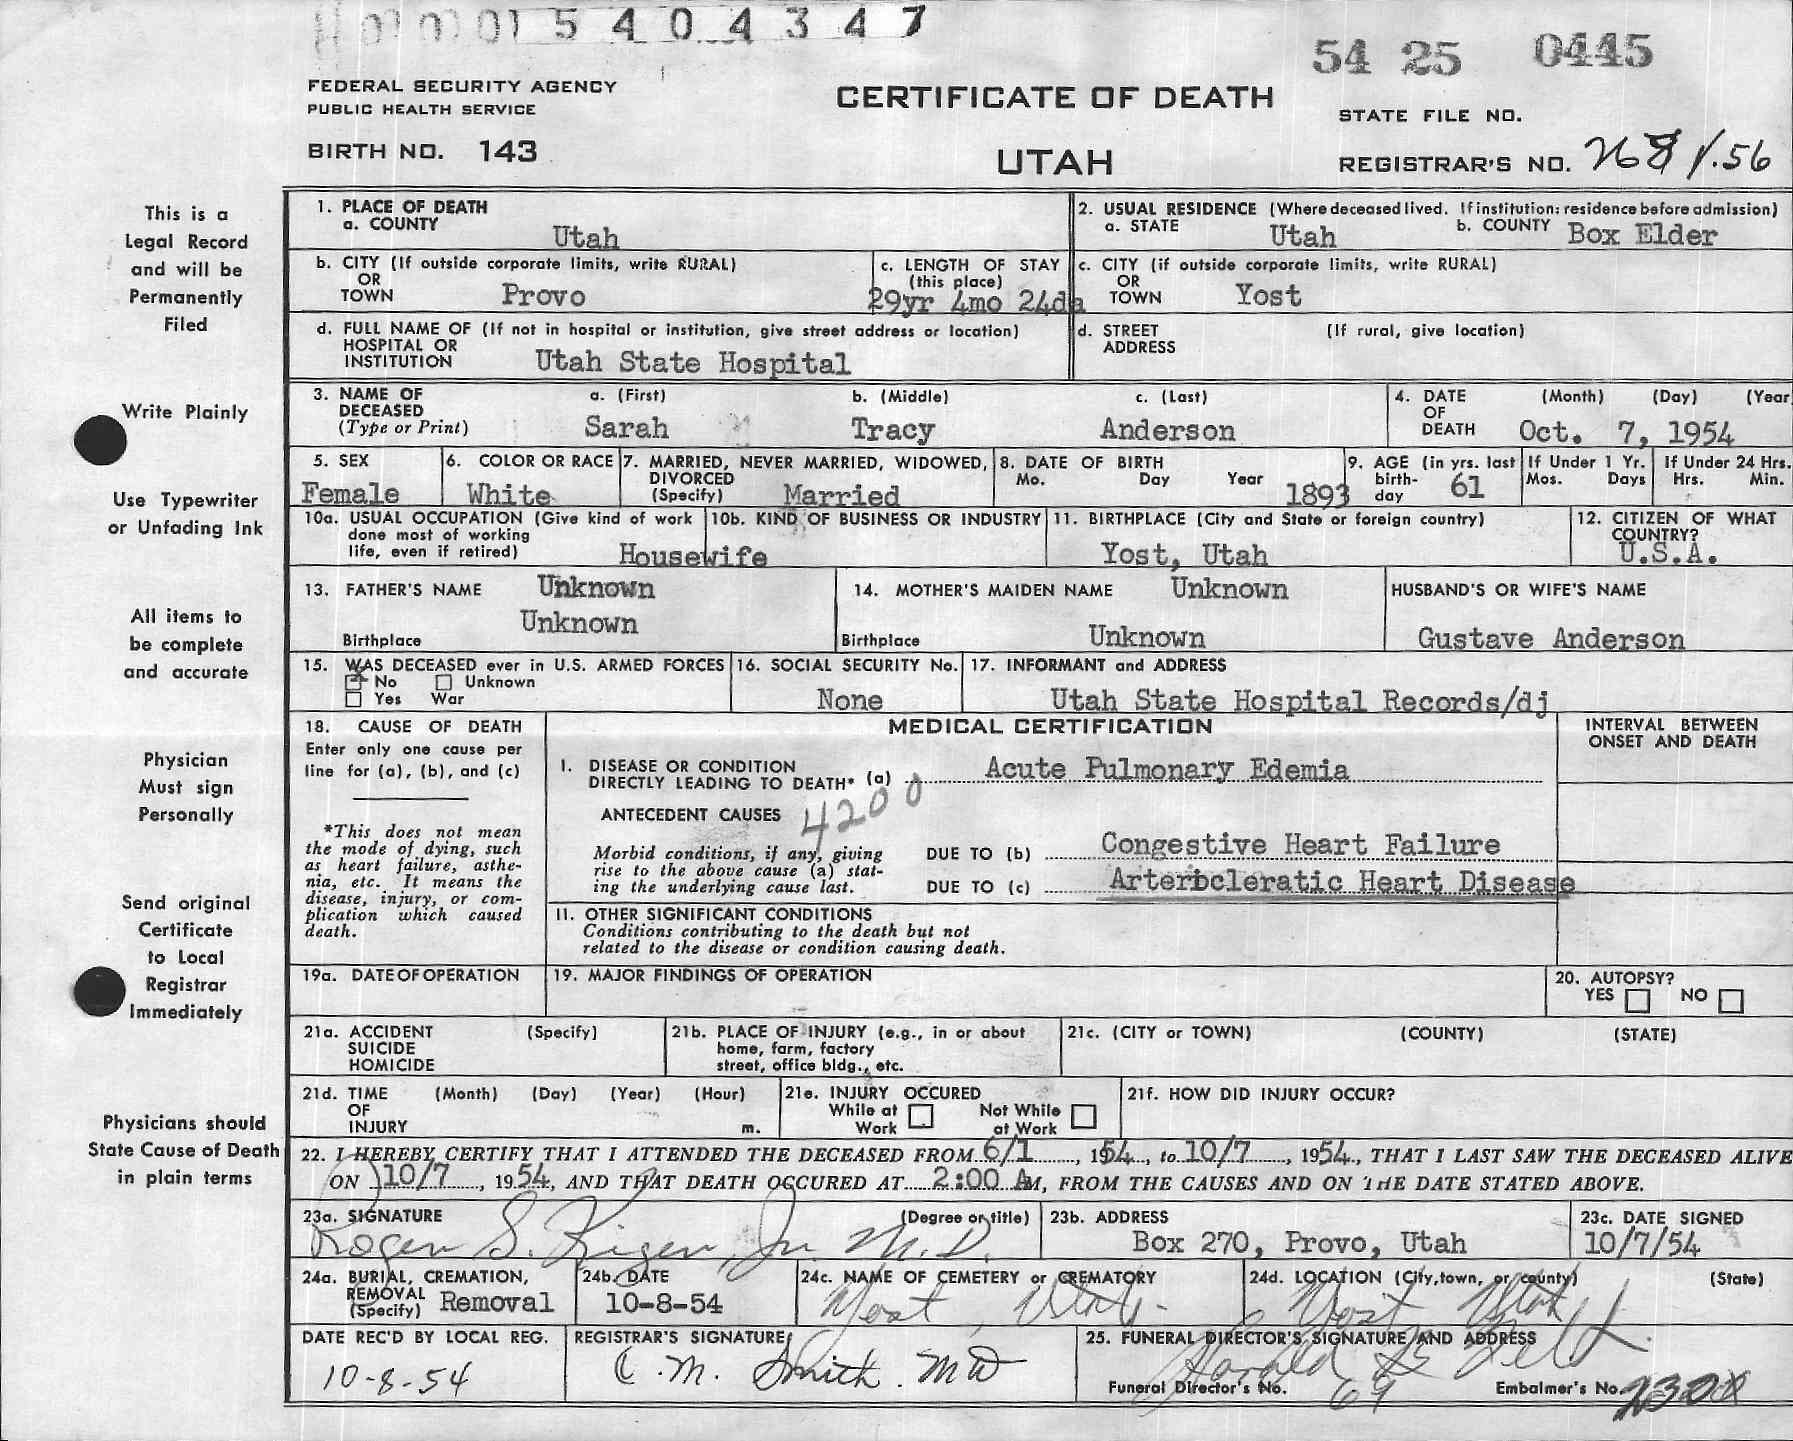 0001 5 4 0 4 3 4 7
54 25 0445
FEDERAL SECURITY AGENCY
PUBLIC HEALTH SERVICE
CERTIFICATE OF DEATH
STATE FILE NO.
BIRTH NO. 143
UTAH
REGISTRAR'S NO.
This is a
Legal Record
and will be
Permanently
Filed
Write Plainly
Use Typewriter
or Unfading Ink
All items to
be complete
and accurate
Physician
Must sign
Personally
Send original
Certificate
to Local
Registrar
Immediately
Physicians should
State Cause of Death
in plain terms
1. PLACE OF DEATH
a. COUNTY Utah
2. USUAL RESIDENCE (Where deceased lived. If institution: residence before admission)
a. STATE Utah b. COUNTY Box Elder
b. CITY (If outside corporate limits, write RURAL)
OR
TOWN Provo
c. LENGTH OF STAY
(this place)
29yr 4mo 24da
c. CITY (if outside corporate limits, write RURAL)
OR
TOWN Yost
d. FULL NAME OF (If not in hospital or institution, give street address or location)
HOSPITAL OR
INSTITUTION Utah State Hospital
d. STREET (If rural, give location)
ADDRESS
3. NAME OF a. (First) b. (Middle) c. (Last)
DECEASED
(Type or Print) Sarah Tracy Anderson
4. DATE (Month) (Day) (Year
OF
DEATH Oct. 7, 1954
5. SEX
Female
6. COLOR OR RACE
White
7. MARRIED, NEVER MARRIED, WIDOWED,
DIVORCED
(Specify) Married
8. DATE OF BIRTH
Mo. Day Year 1893
9. AGE (in yrs. last
birth-
day 61
If Under 1 Yr.
Mos. Days
If Under 24 Hrs.
Hrs. Min.
10a. USUAL OCCUPATION (Give kind of work
done most of working
life, even if retired) Housewife
10b. KIND OF BUSINESS OR INDUSTRY
11. BIRTHPLACE (City and State or foreign country)
Yost, Utah
12. CITIZEN OF WHAT
COUNTRY?
U.S.A.
13. FATHER'S NAME Unknown
Unknown
Birthplace
14. MOTHER'S MAIDEN NAME Unknown
Birthplace Unknown
HUSBAND'S OR WIFE'S NAME
Gustave Anderson
15. WAS DECEASED ever in U.S. ARMED FORCES
No Unknown
Yes War
16. SOCIAL SECURITY No.
None
17. INFORMANT and ADDRESS
Utah State Hospital Records/dj
18. CAUSE OF DEATH
Enter only one cause per
line for (a), (b), and (c)
*This does not mean
the mode of dying, such
as heart failure, asthe-
nia, etc. It means the
disease, injury, or com-
plication which caused
death.
MEDICAL CERTIFICATION
INTERVAL BETWEEN
ONSET AND DEATH
I. DISEASE OR CONDITION
DIRECTLY LEADING TO DEATH* (a) Acute Pulmonary Edemia
ANTECEDENT CAUSES 4200
Morbid conditions, if any, giving
rise to the above cause (a) stat-
ing the underlying cause last.
DUE TO (b) Congestive Heart Failure
DUE TO (c) Arterbcleratic Heart Disease
II. OTHER SIGNIFICANT CONDITIONS
Conditions contributing to the death but not
related to the disease or condition causing death.
19a. DATE OF OPERATION
19. MAJOR FINDINGS OF OPERATION
20. AUTOPSY?
YES NO
21a. ACCIDENT (Specify)
SUICIDE
HOMICIDE
21b. PLACE OF INJURY (e.g., in or about
home, farm, factory
street, office bldg., etc.
21c. (CITY or TOWN) (COUNTY) (STATE)
21d. TIME (Month) (Day) (Year) (Hour)
OF
INJURY m.
21e. INJURY OCCURED
While at Not While
Work at Work
21f. HOW DID INJURY OCCUR?
22. I HEREBY CERTIFY THAT I ATTENDED THE DECEASED FROM 6/1, 1954, to 10/7, 1954, THAT I LAST SAW THE DECEASED ALIVE
ON 10/7, 1954, AND THAT DEATH OCCURED AT 2:00 AM, FROM THE CAUSES AND ON THE DATE STATED ABOVE.
23a. SIGNATURE (Degree or title)
Roger S. Jr. M.D.
23b. ADDRESS
Box 270, Provo, Utah
23c. DATE SIGNED
10/7/54
24a. BURIAL, CREMATION,
REMOVAL
(Specify) Removal
24b. DATE
10-8-54
24c. NAME OF CEMETERY or CREMATORY
Yost, Utah.
24d. LOCATION (City, town, or county) (State)
Yost Utah
DATE REC'D BY LOCAL REG.
10-8-54
REGISTRAR'S SIGNATURE
C. M. Smith. MD
25. FUNERAL DIRECTOR'S SIGNATURE AND ADDRESS
Harold
Funeral Director's No. 69
Embalmer's No.